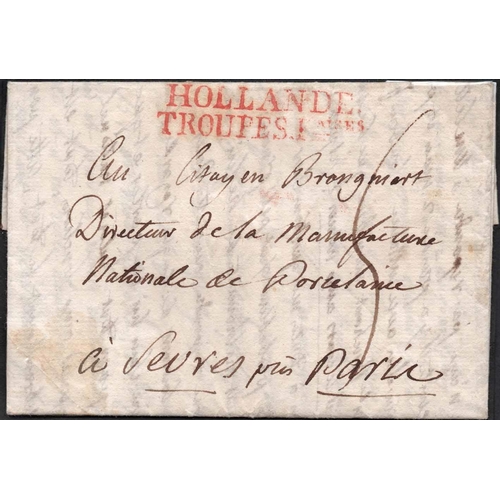 HOLLANDE.
TROUPES.F.AISES
Au Citoyen Brongniart
Directeur de la Manufacture
Nationale de Porcelaine
à Sevres près Paris
5